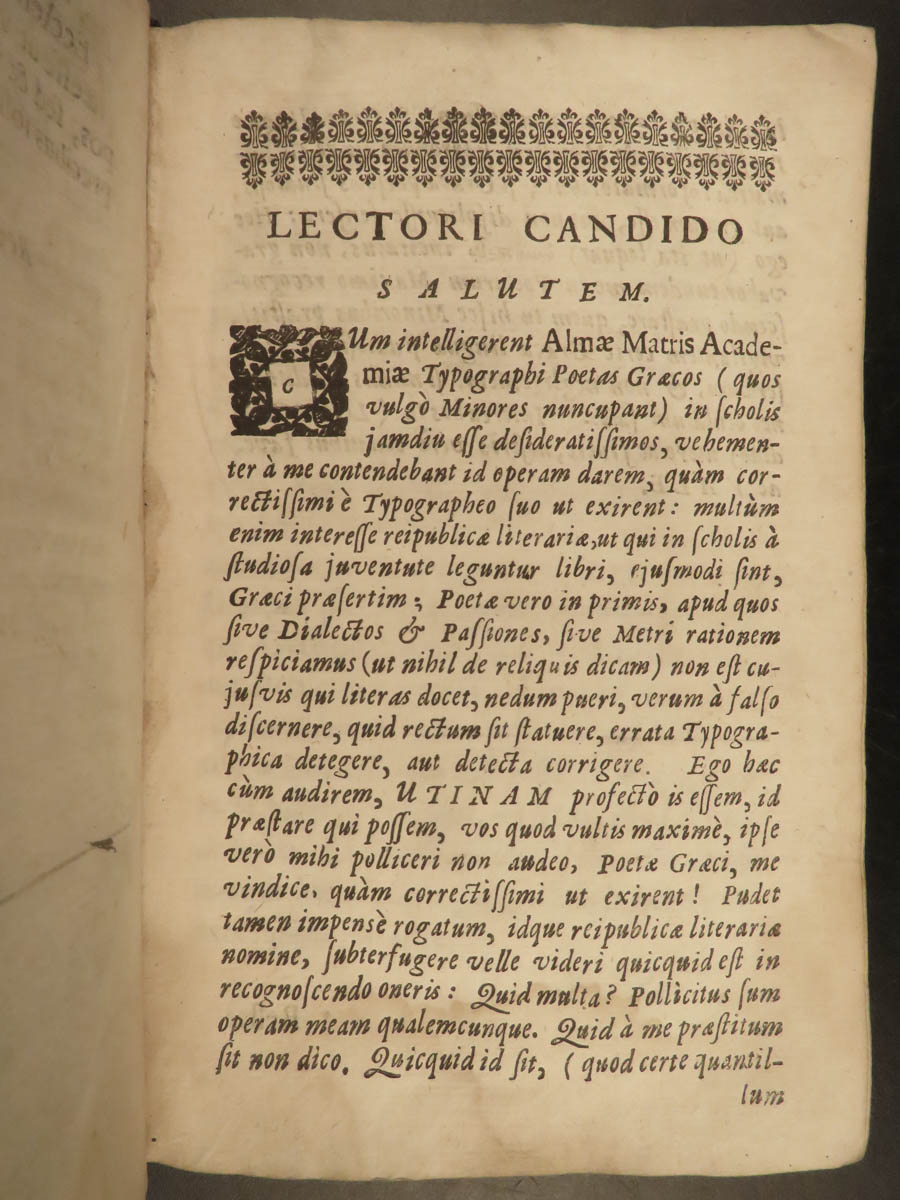 LECTORI CANDIDO
SALUTEM.
CUm intelligerent Almæ Matris Acade-
miæ Typographi Poetas Græcos ( quos
vulgò Minores nuncupant) in ſcholis
jamdiu eſſe deſideratiſſimos, vehemen-
ter à me contendebant id operam darem, quàm cor-
rectiſſimi è Typographeo ſuo ut exirent: multùm
enim intereſſe reipublicæ literariæ, ut qui in ſcholis à
ſtudioſa juventute leguntur libri, ejuſmodi ſint,
Græci præſertim; Poetæ vero in primis, apud quos
ſive Dialectos & Paſſiones, ſive Metri rationem
reſpiciamus (ut nihil de reliquis dicam) non eſt cu-
juſvis qui literas docet, nedum pueri, verum à falſo
diſcernere, quid rectum ſit ſtatuere, errata Typogra-
phica detegere, aut detecta corrigere. Ego hæc
cùm audirem, UTINAM profectò is eſſem, id
præſtare qui poſſem, vos quod vultis maximè, ipſe
verò mihi polliceri non audeo, Poetæ Græci, me
vindice, quàm correctiſſimi ut exirent! Pudet
tamen impensè rogatum, idque reipublicæ literariæ
nomine, ſubterfugere velle videri quicquid eſt in
recognoſcendo oneris: Quid multa? Pollicitus ſum
operam meam qualemcunque. Quid à me præſtitum
ſit non dico. Quicquid id ſit, ( quod certe quantil-
lum